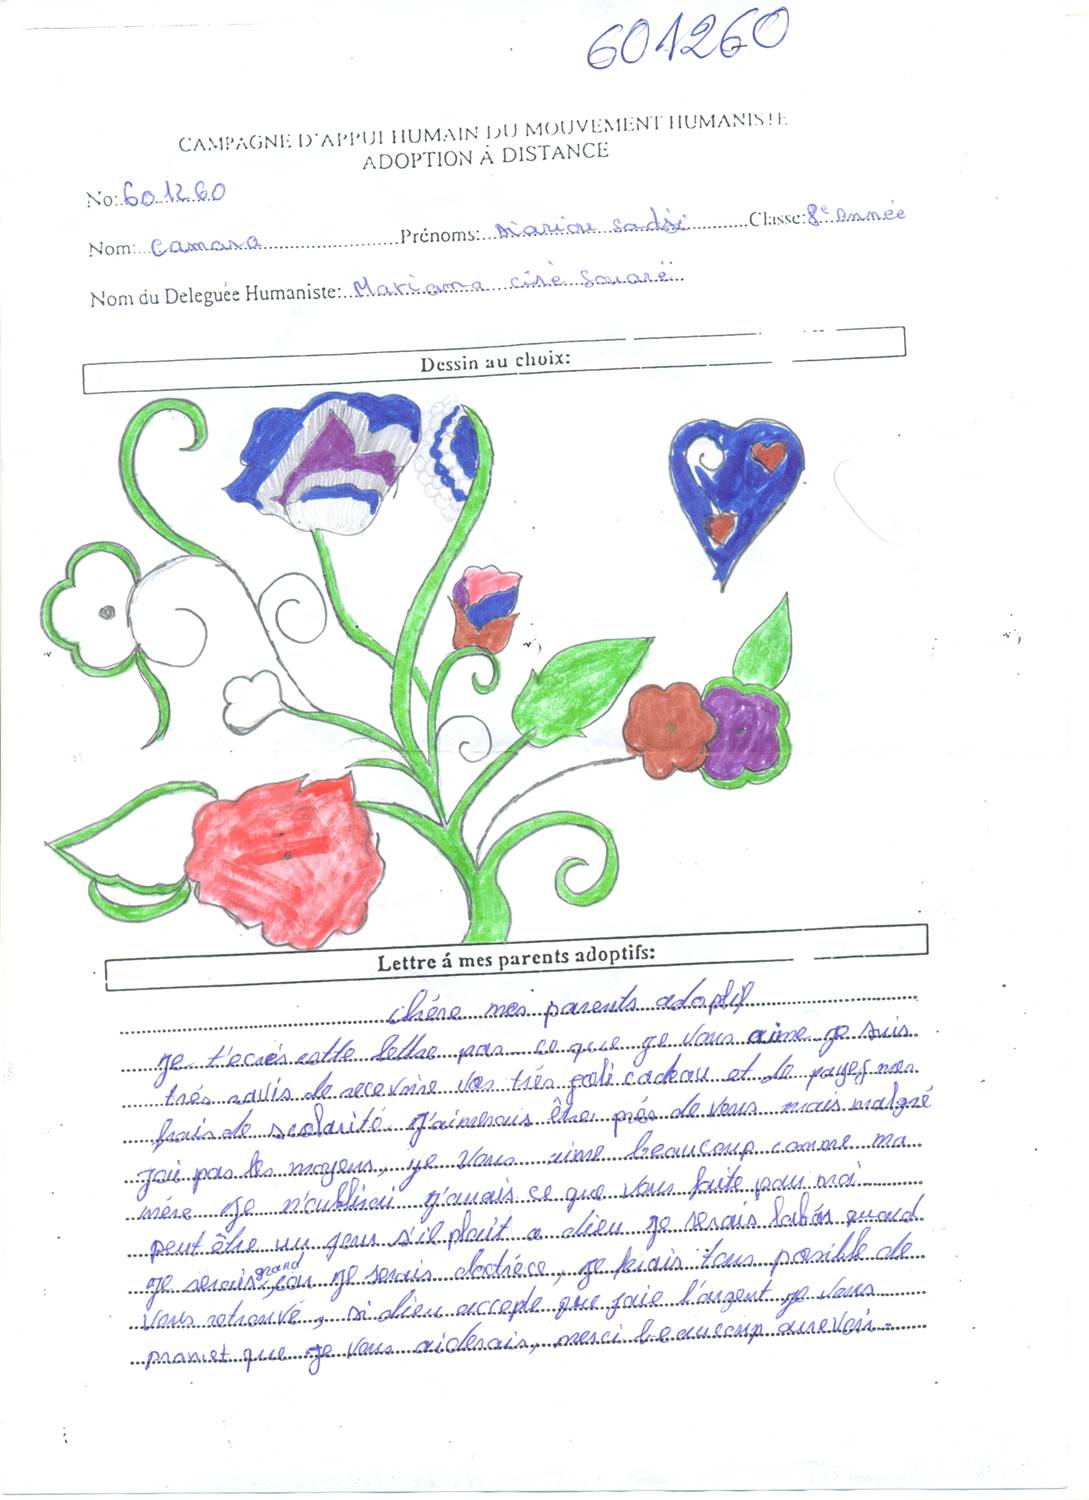 601260
CAMPAGNE D'APPUI HUMAIN DU MOUVEMENT HUMANISTE
ADOPTION Á DISTANCE
No: 601260
Nom: Camara Prénoms: Sadji Classe: 8e Année
Nom du Deleguée Humaniste: Mariama ciré Souaré
Dessin au choix:
Lettre á mes parents adoptifs:
chére mes parents adoptif
je t'ecris cette lettre par ce que je vous aime je suis
trés ravis de recevoire vos trés joli cadeau et de payer mes
frais de scolarité. J'aimerais être prés de vous mais malgré
jai pas les moyens, je vous aime beaucoup comme ma
mére je n'oublirai j'amais ce que vous faite pour moi
peut être un jour s'il plait a dieu je serais labás quand
je serais grand, je serais doctréce, je ferais tous possible de
vous retrouvé, si dieu accepte que jaie l'argent je vous
promet que je vous aiderais, merci beaucoup aurevoir.